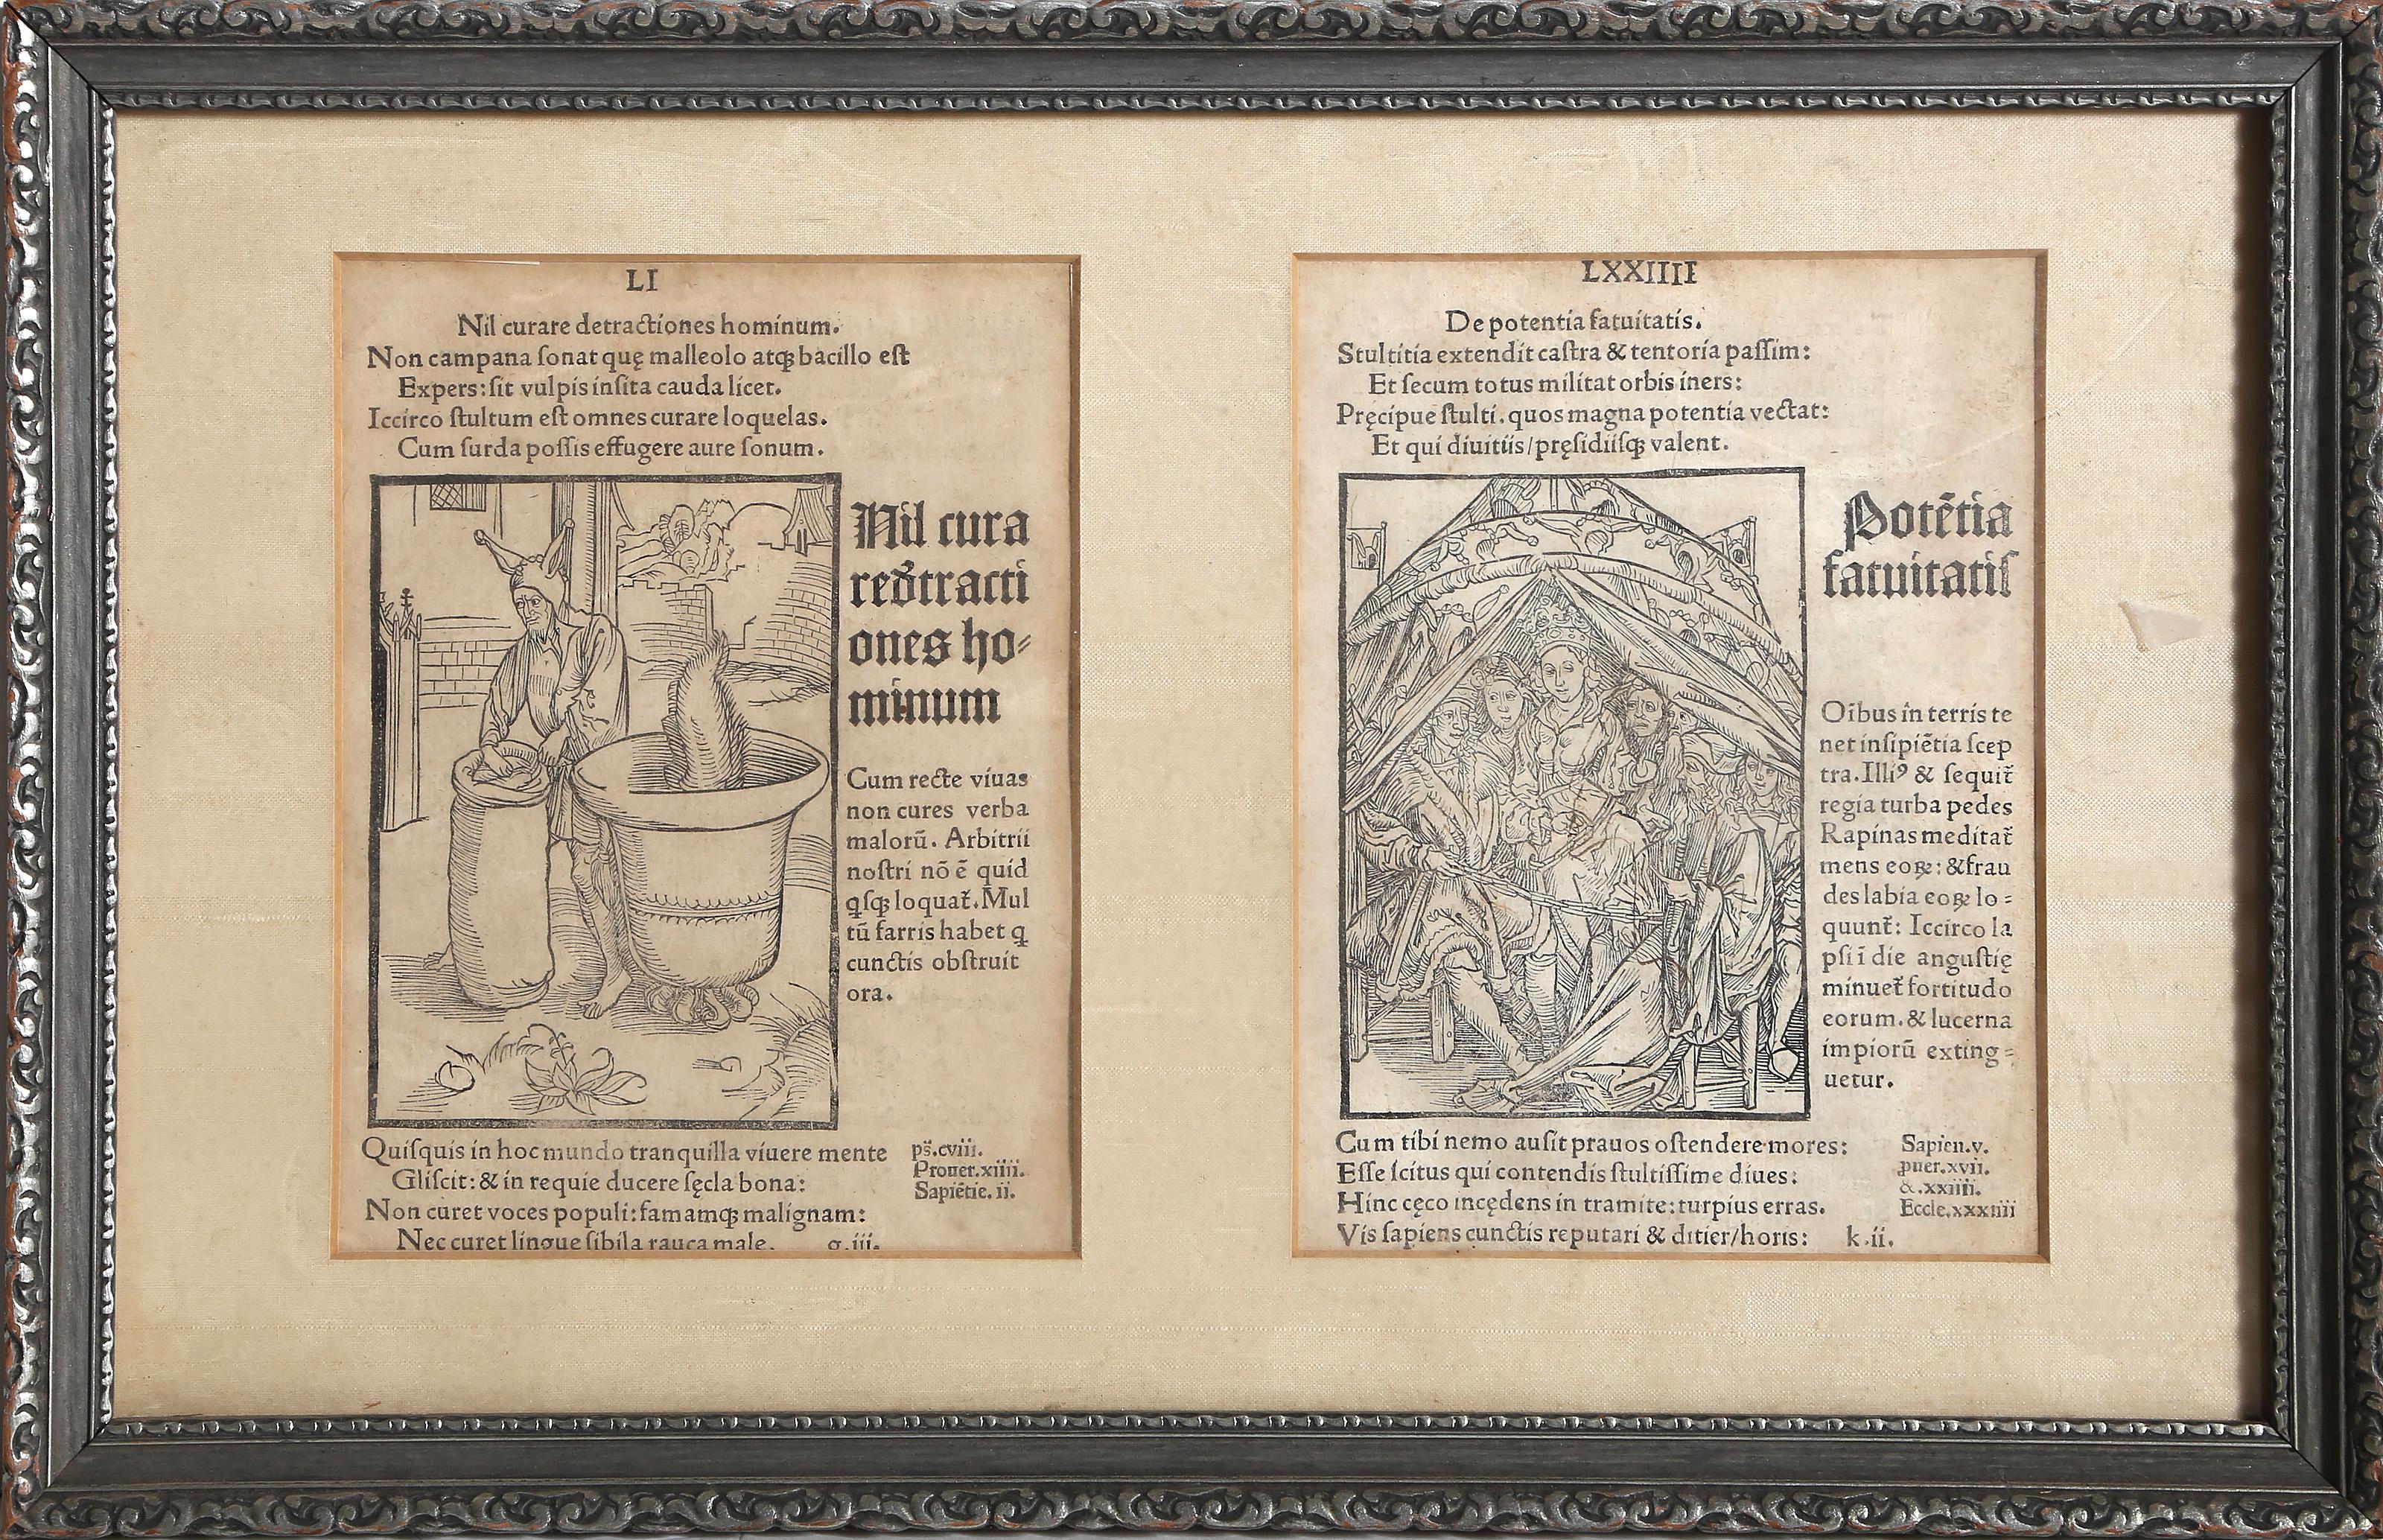 LI
Nil curare detractiones hominum.
Non campana ſonat quę malleolo atqꝫ bacillo eſt
Expers: ſit vulpis inſita cauda licet.
Iccirco ſtultum eſt omnes curare loquelas.
Cum ſurda poſſis effugere aure ſonum.
Nil cura
re dtracti
ones ho⸗
minum
Cum recte viuas
non cures verba
malorū. Arbitrii
noſtri nō ē quid
qſqꝫ loquat̄. Mul
tū farris habet q
cunctis obſtruit
ora.
Quiſquis in hoc mundo tranquilla viuere mente
Gliſcit: & in requie ducere ſęcla bona:
Non curet voces populi: famamqꝫ malignam:
Nec curet lingue ſibila rauca male. g.iii.
ps̄.cviii.
Prouer.xiiii.
Sapiētie. ii.
LXXIIII
De potentia fatuitatis.
Stultitia extendit caſtra & tentoria paſſim:
Et ſecum totus militat orbis iners:
Pręcipue ſtulti. quos magna potentia vectat:
Et qui diuitiis/pręſidiiſqꝫ valent.
Potētia
fatuitatiſ
Oībus in terris te
net inſipiētia ſcep
tra. Illiꝰ & ſequit̄
regia turba pedes
Rapinas meditat̄
mens eoꝝ: & frau
des labia eoꝝ lo⸗
quunt̄: Iccirco la
pſi ī die anguſtię
minuet̄ fortitudo
eorum. & lucerna
impiorū exting⸗
uetur.
Cum tibi nemo auſit prauos oſtendere mores:
Eſſe ſcitus qui contendis ſtultiſſime diues:
Hinc cęco incędens in tramite: turpius erras.
Vis ſapiens cunctis reputari & ditier/horis: k.ii.
Sapien.v.
ꝓuer.xvii.
&.xxiiii.
Eccle.xxxiiii